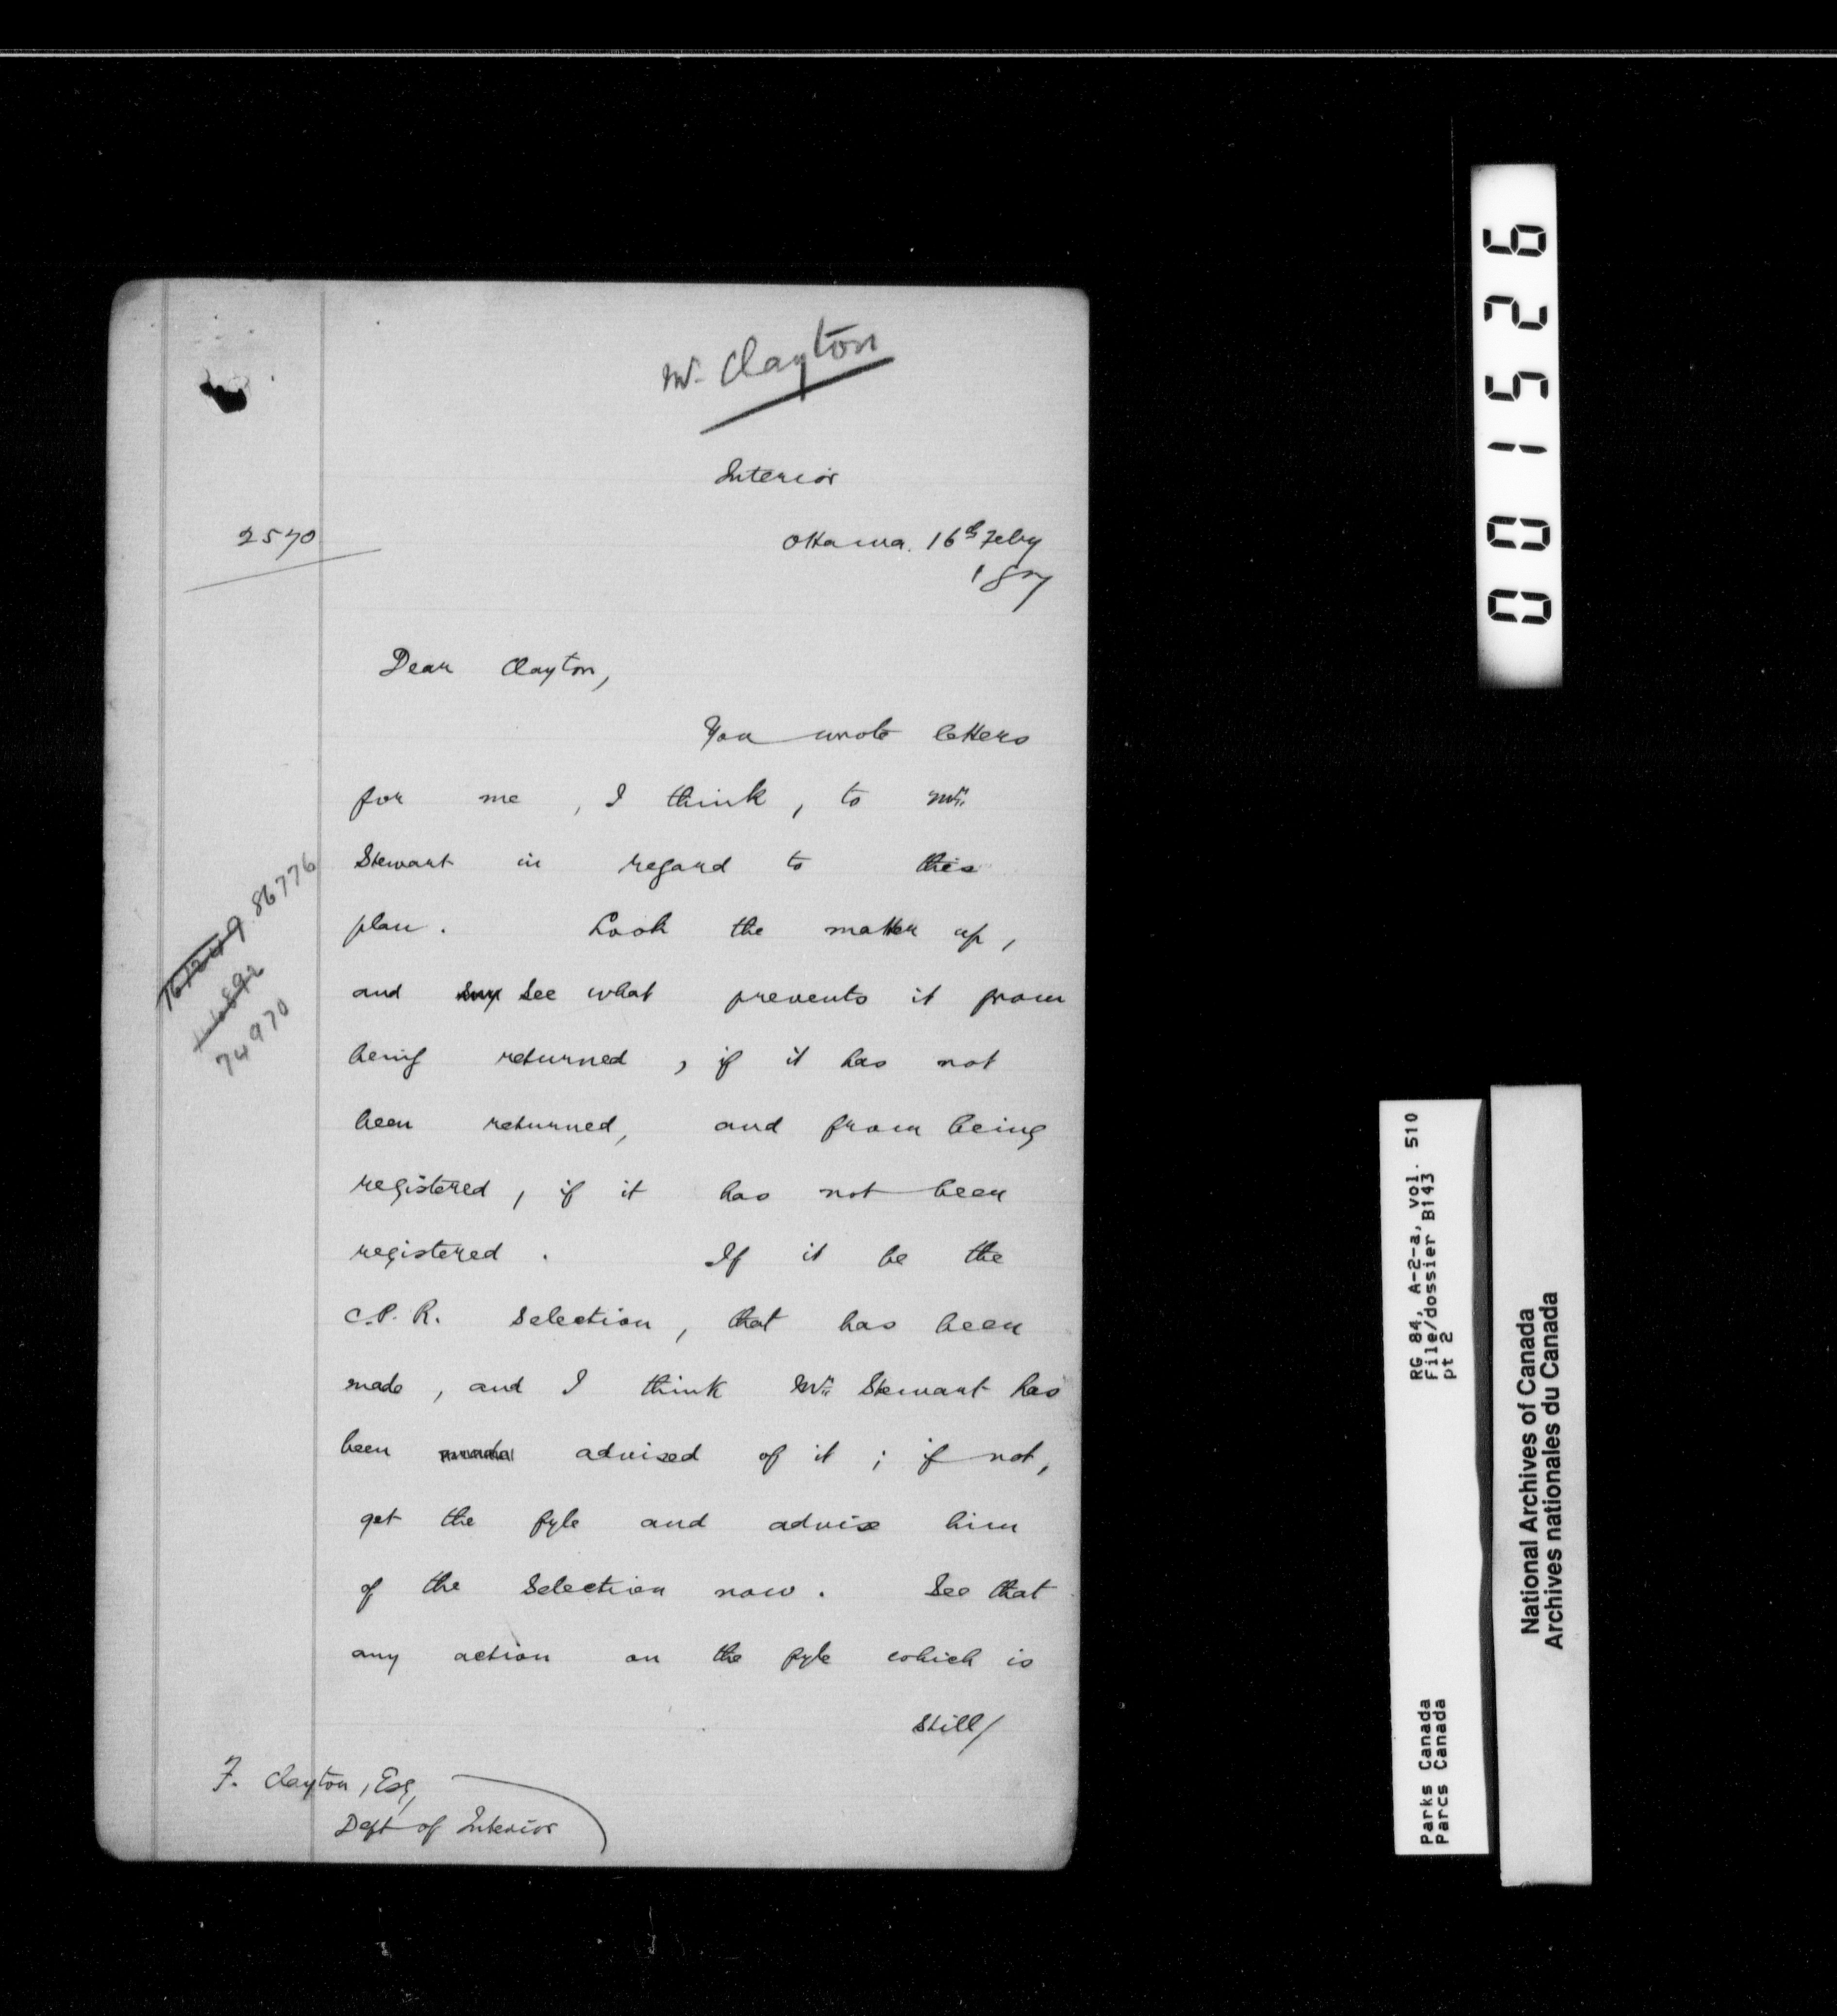 Mr. Clayton
Interior
2570
Ottawa. 16th Feby
187
Dear Clayton,
You wrote letters
for me, I think, to Mr.
Stewart in regard to this
plan. Look the matter up,
and see what prevents it from
being returned, if it has not
been returned, and from being
registered, if it has not been
registered. If it be the
C.P.R. selection, that has been
made, and I think Mr. Stewart has
been advised of it; if not,
get the fyle and advise him
of the selection now. See that
any action on the fyle which is
still/
F. Clayton, Esq,
Dept of Interior
86776
74970
001526
RG 84, A-2-a, vol. 510
File/dossier B143
pt 2
Parks Canada
Parcs Canada
National Archives of Canada
Archives nationales du Canada